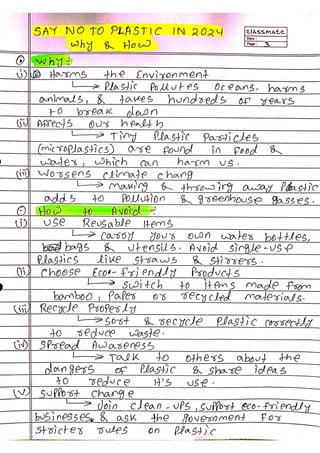 SAY NO TO PLASTIC IN 2024
Why & How
CLASSMATE
Date :
Page : 3
Why:-
i) Harms the Environment
Plastic Pollutes oceans, harms
animals, & takes hundreds of years
to break down
(ii) Affects Our health
Tiny Plastic Particles
(microplastics) are found in food &
water, which can harm us.
(iii) Worsens climate chang
making & throwing away Plastic
adds to Pollution & greenhouse gasses.
How to Avoid:-
(i) Use Reusable Items
carry your own water bottles,
bags & utensils. Avoid single-use
Plastics like straws & stirrers.
(ii) Choose Eco-friendly Products
switch to items made from
bamboo, Paper or recycled materials.
(iii) Recycle Properly
Sort & recycle Plastic correctly
to reduce waste.
(iv) Spread Awareness
Talk to others about the
dangers of Plastic & share ideas
to reduce it's use.
(v) Support change
Join clean-ups, support eco-friendly
businesses & ask the government for
stricter rules on Plastic